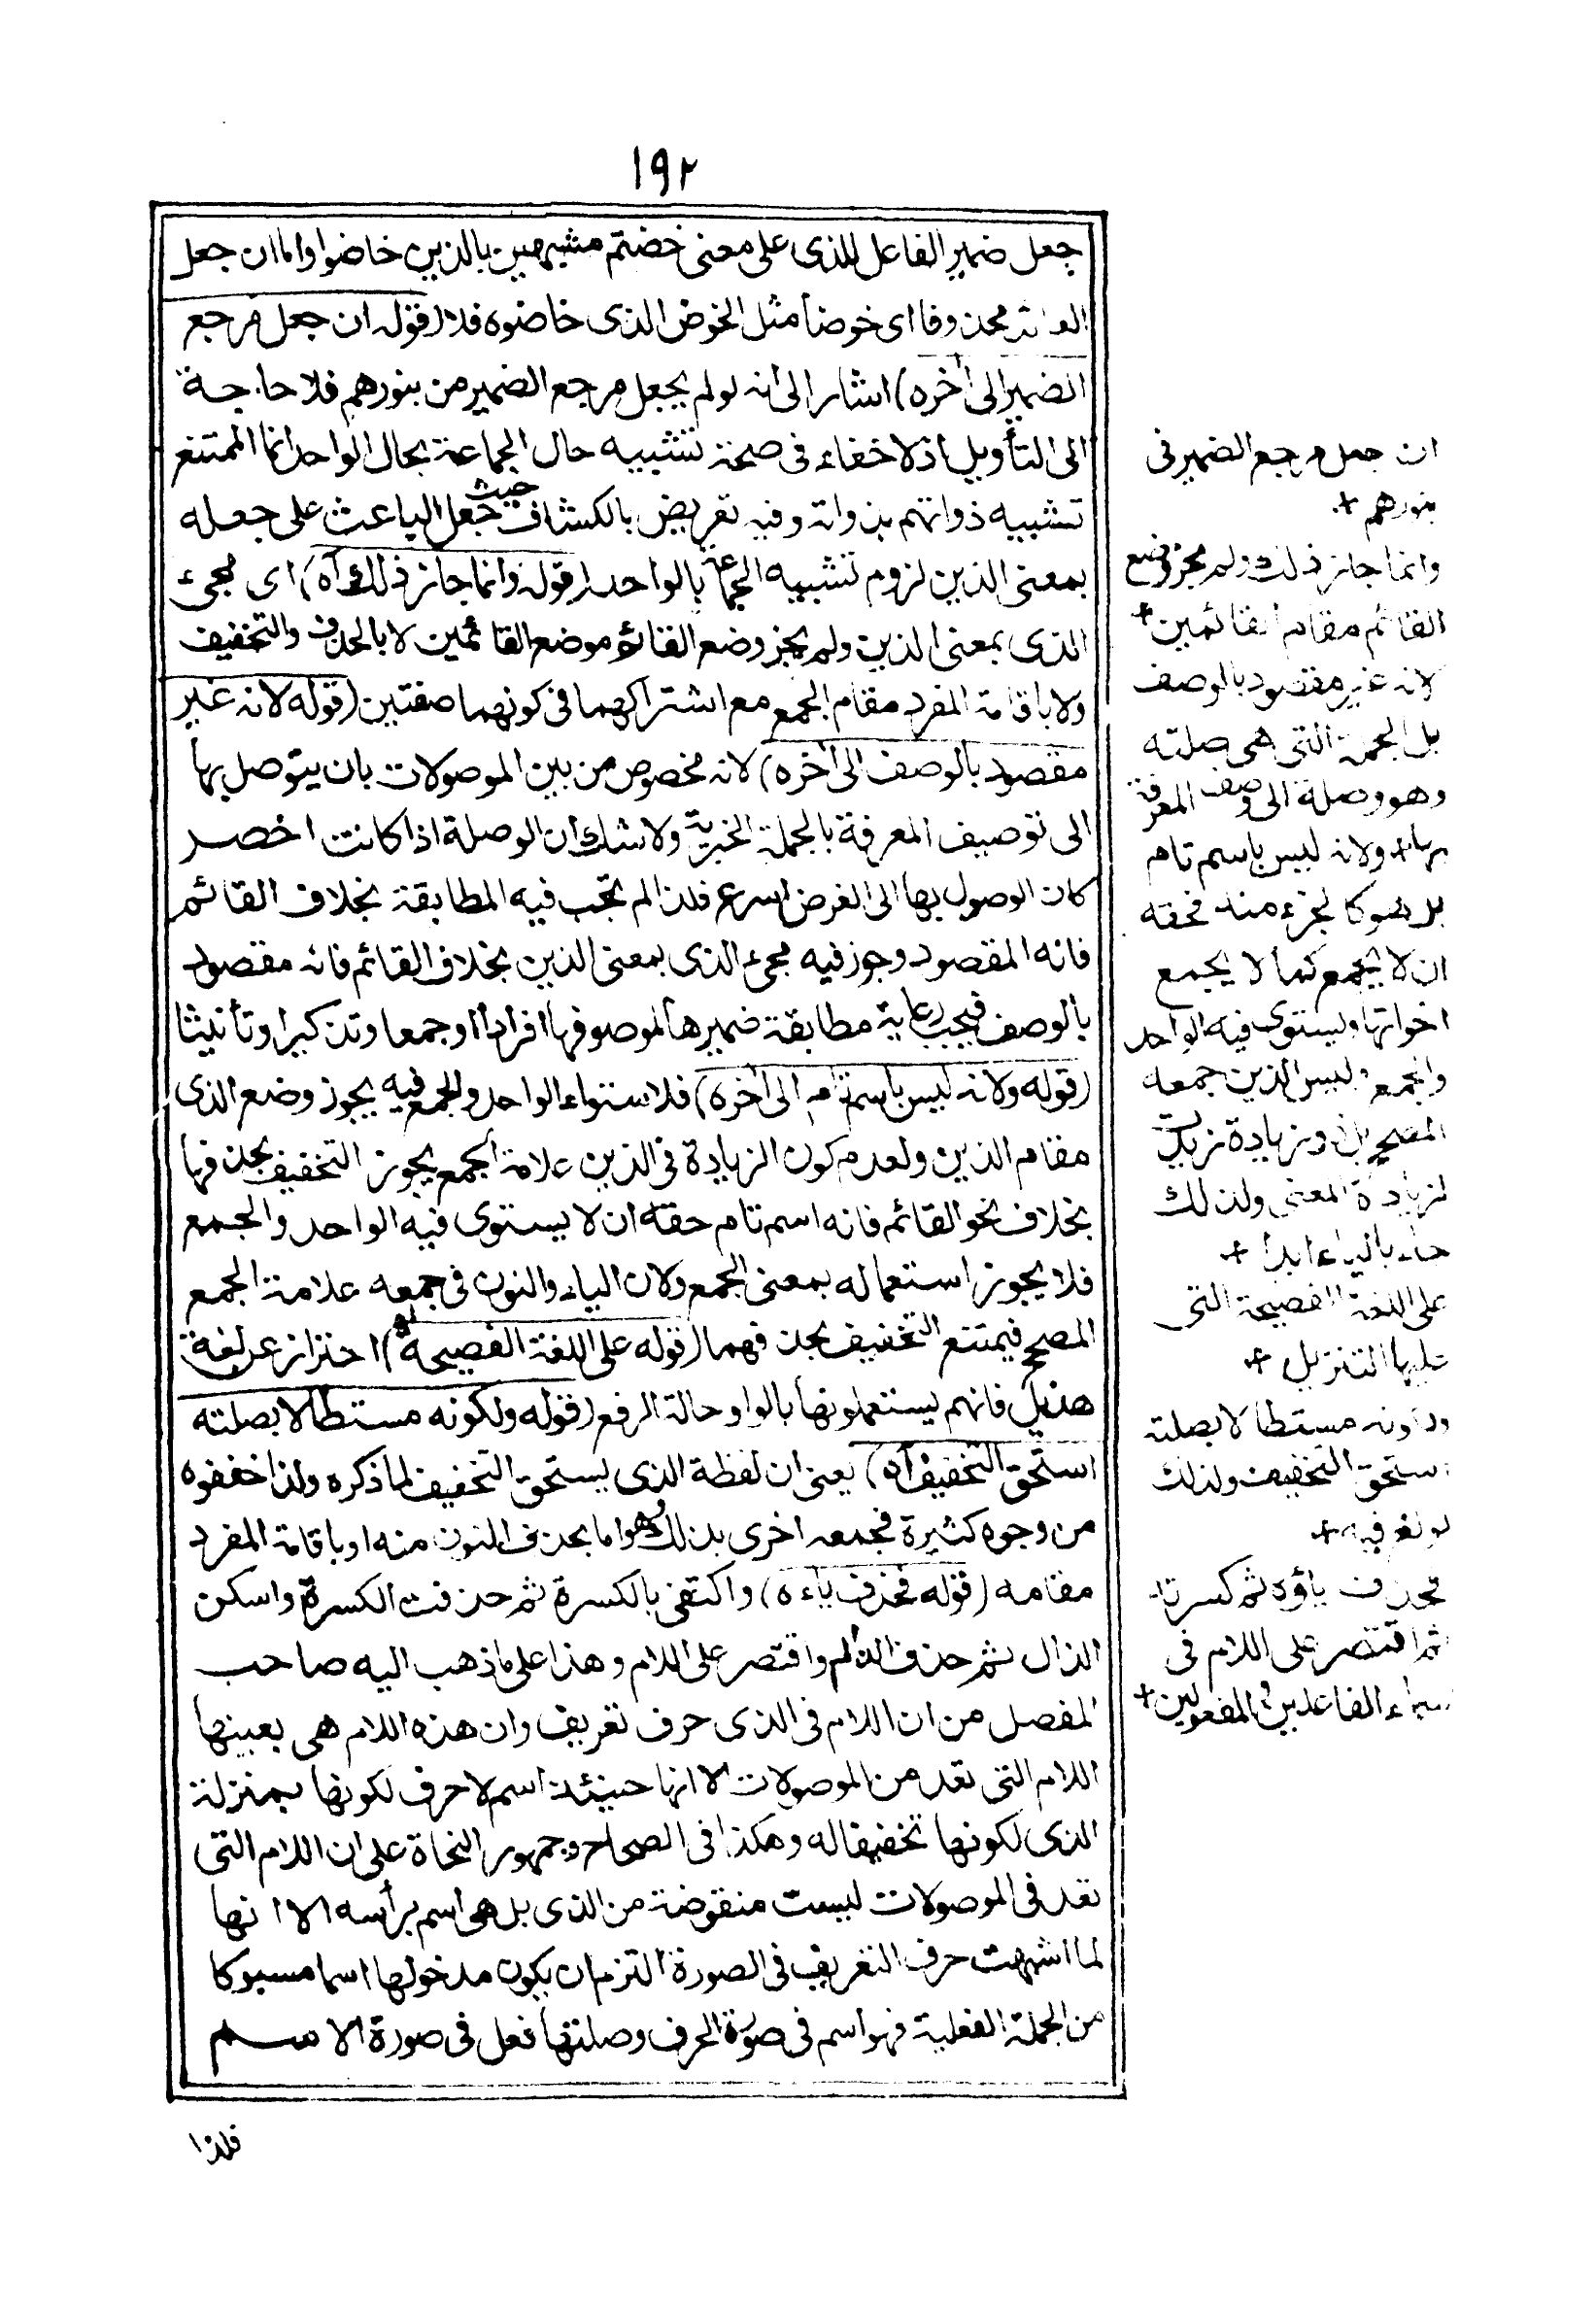 ١٩٢
جعل ضمير الفاعل للذى على معنى خضتم مشبهين بالذين خاضوا واما ان جعل
العائد محذوفا اى خوضا مثل الخوض الذى خاضوه فلا (قوله ان جعل مرجع
الضمير الى آخره) اشار الى انه لو لم يجعل مرجع الضمير من بنورهم فلا حاجة
الى التأويل اذ لا خفاء فى صحة تشبيه حال الجماعة بحال الواحد انما الممتنع
تشبيه ذواتهم بذواته وفيه تعريض بالكشاف حيث جعل الباعث على جعله
بمعنى الذين لزوم تشبيه الجماعة بالواحد (قوله وانما جاز ذلك آه) اى مجىء
الذى بمعنى الذين ولم يجز وضع القائم موضع القائمين لا بالحذف والتخفيف
ولا باقامة المفرد مقام الجمع مع اشتراكهما فى كونهما صفتين (قوله لانه غير
مقصود بالوصف الى آخره) لانه مخصوص من بين الموصولات بان يتوصل بها
الى توصيف المعرفة بالجملة الخبرية ولا شك ان الوصلة اذا كانت اخصر
كان الوصول بها الى الغرض اسرع فلذا لم تجب فيه المطابقة بخلاف القائم
فانه المقصود وجوز فيه مجىء الذى بمعنى الذين بخلاف القائم فانه مقصود
بالوصف فيجب رعاية مطابقة ضميرها لموصوفها افرادا وجمعا وتذكيرا وتأنيثا
(قوله ولانه ليس باسم تام الى آخره) فلاستواء الواحد والجمع فيه يجوز وضع الذى
مقام الذين ولعدم كون الزيادة فى الذين علامة الجمع يجوز التخفيف بحذفها
بخلاف نحو القائم فانه اسم تام حقه ان لا يستوى فيه الواحد والجمع
فلا يجوز استعماله بمعنى الجمع ولان الياء والنون فى جمعه علامة الجمع
المصحح فيمتنع التخفيف بحذفهما (قوله على اللغة الفصيحة آه) احتراز عن لغة
هذيل فانهم يستعملونها بالواو حالة الرفع (قوله ولكونه مستطالا بصلته
استحق التخفيف آه) يعنى ان لفظة الذى يستحق التخفيف لما ذكره ولذا خففوه
من وجوه كثيرة فجمعه اخرى بذلك وهو اما بحذف النون منه او باقامة المفرد
مقامه (قوله فحذف ياءه) واكتفى بالكسرة ثم حذفت الكسرة واسكن
الذال ثم حذف الذال واقتصر على اللام وهذا على ما ذهب اليه صاحب
المفصل من ان اللام فى الذى حرف تعريف وان هذه اللام هى بعينها
اللام التى تعد من الموصولات الا انها حينئذ اسم لا حرف لكونها بمنزلة
الذى لكونها تخفيفا له وهكذا فى الصحاح وجمهور النحاة على ان اللام التى
تعد فى الموصولات ليست منقوضة من الذى بل هى اسم برأسه الا انها
لما اشبهت حرف التعريف فى الصورة التزم ان يكون مدخولها اسما مسبوكا
من الجملة الفعلية فهو اسم فى صورة الحرف وصلتها فعل فى صورة الاسم
فلذا
ان جعل مرجع الضمير فى
بنورهم +
وانما جاز ذلك ولم يجز وضع
القائم مقام القائمين +
لانه غير مقصود بالوصف
بل الجملة التى هى صلته
وهو وصلة الى وصف المعرفة
بها + ولانه ليس باسم تام
بل هو كالجزء منه فحقه
ان لا يجمع كما لا يجمع
اخواتها ويستوى فيه الواحد
والجمع وليس الذين جمعه
المصحح بل ذو زيادة زيدت
لزيادة المعنى ولذلك
جاء بالياء ابدا +
على اللغة الفصيحة التى
عليها التنزيل +
ولكونه مستطالا بصلته
استحق التخفيف ولذلك
بولغ فيه +
فحذف ياؤه ثم كسرته
ثم اقتصر على اللام فى
اسماء الفاعلين والمفعولين +